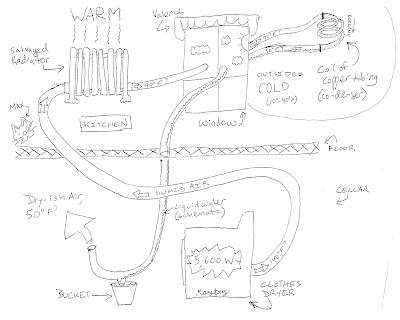 WARM
Valence
Salvaged
Radiator
OUTSIDE:
COLD
(10°-40°F)
Coil of
copper tubing
(condenser)
MAX
KITCHEN
Window
FLOOR
HUMID AIR
Dry-ish Air,
50°F?
Liquid water
(schematic)
CELLAR
5,600 W
Maytag
CLOTHES
DRYER
BUCKET